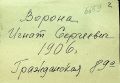 Ворона
Игнат Сергеевич
1906.
Гражданская